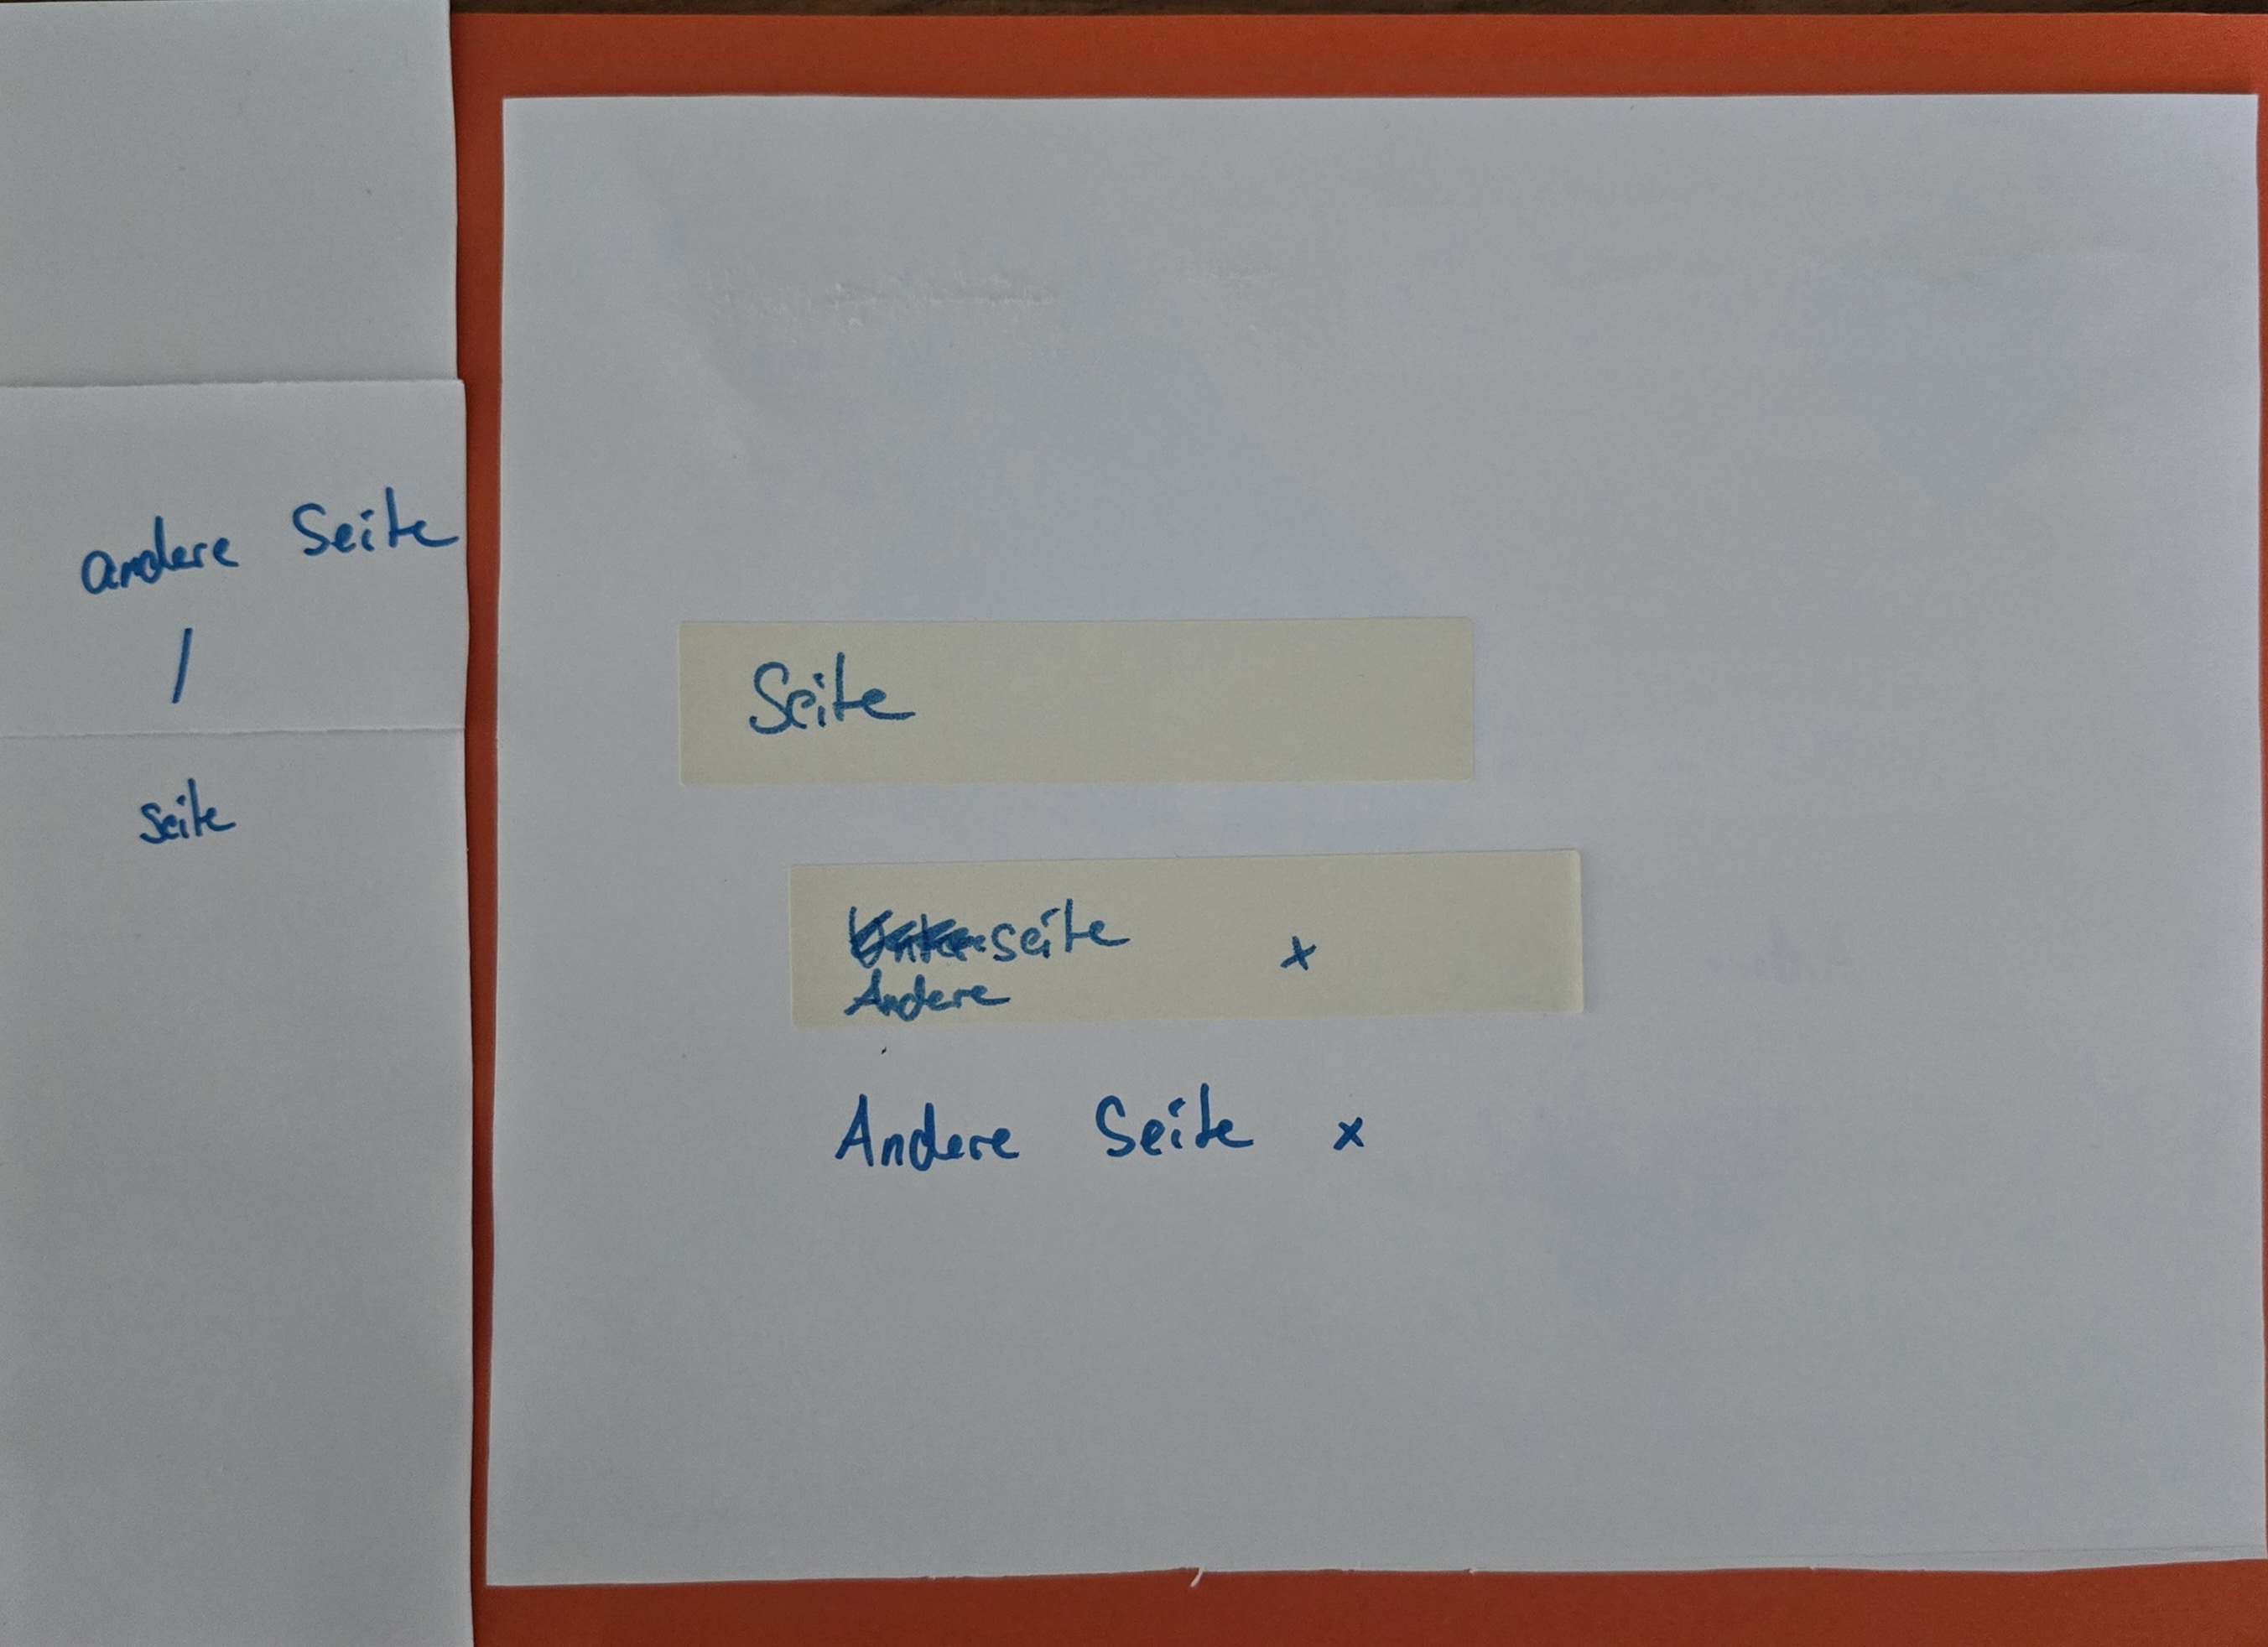 andere Seite
/
seite
Seite
seite x
Andere
Andere Seite x